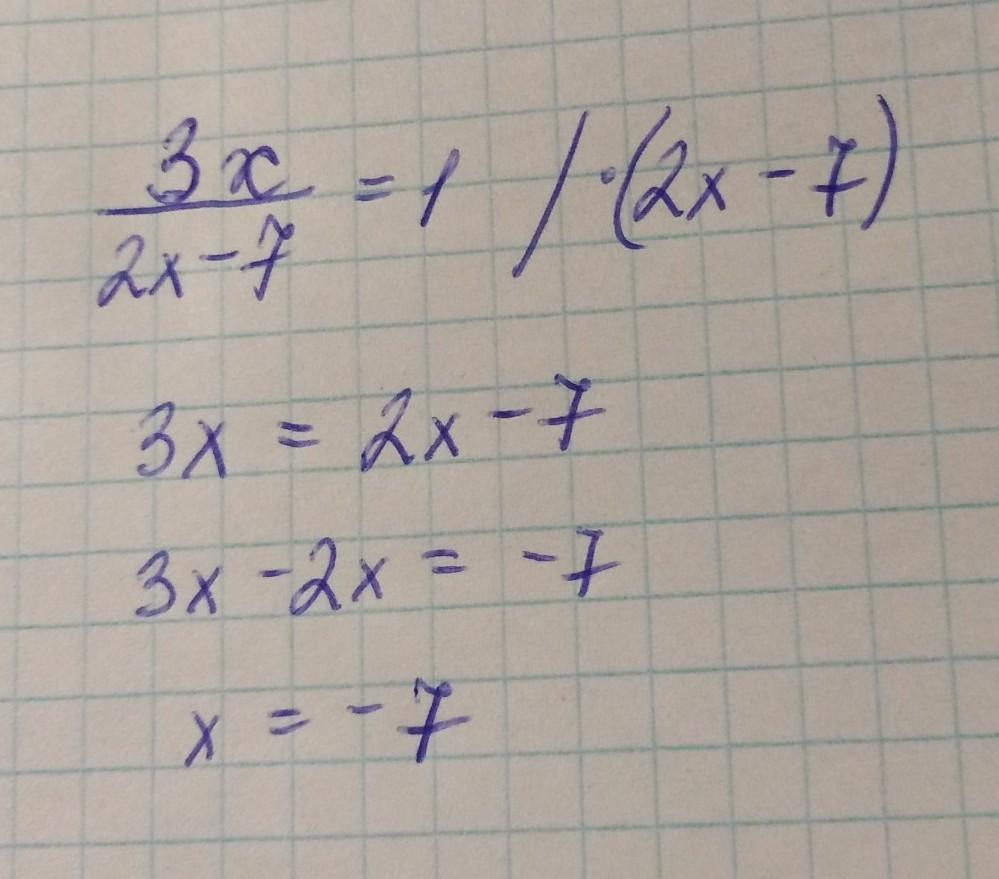 3x/(2x-7) = 1 / ·(2x - 7)
3x = 2x - 7
3x - 2x = -7
x = -7